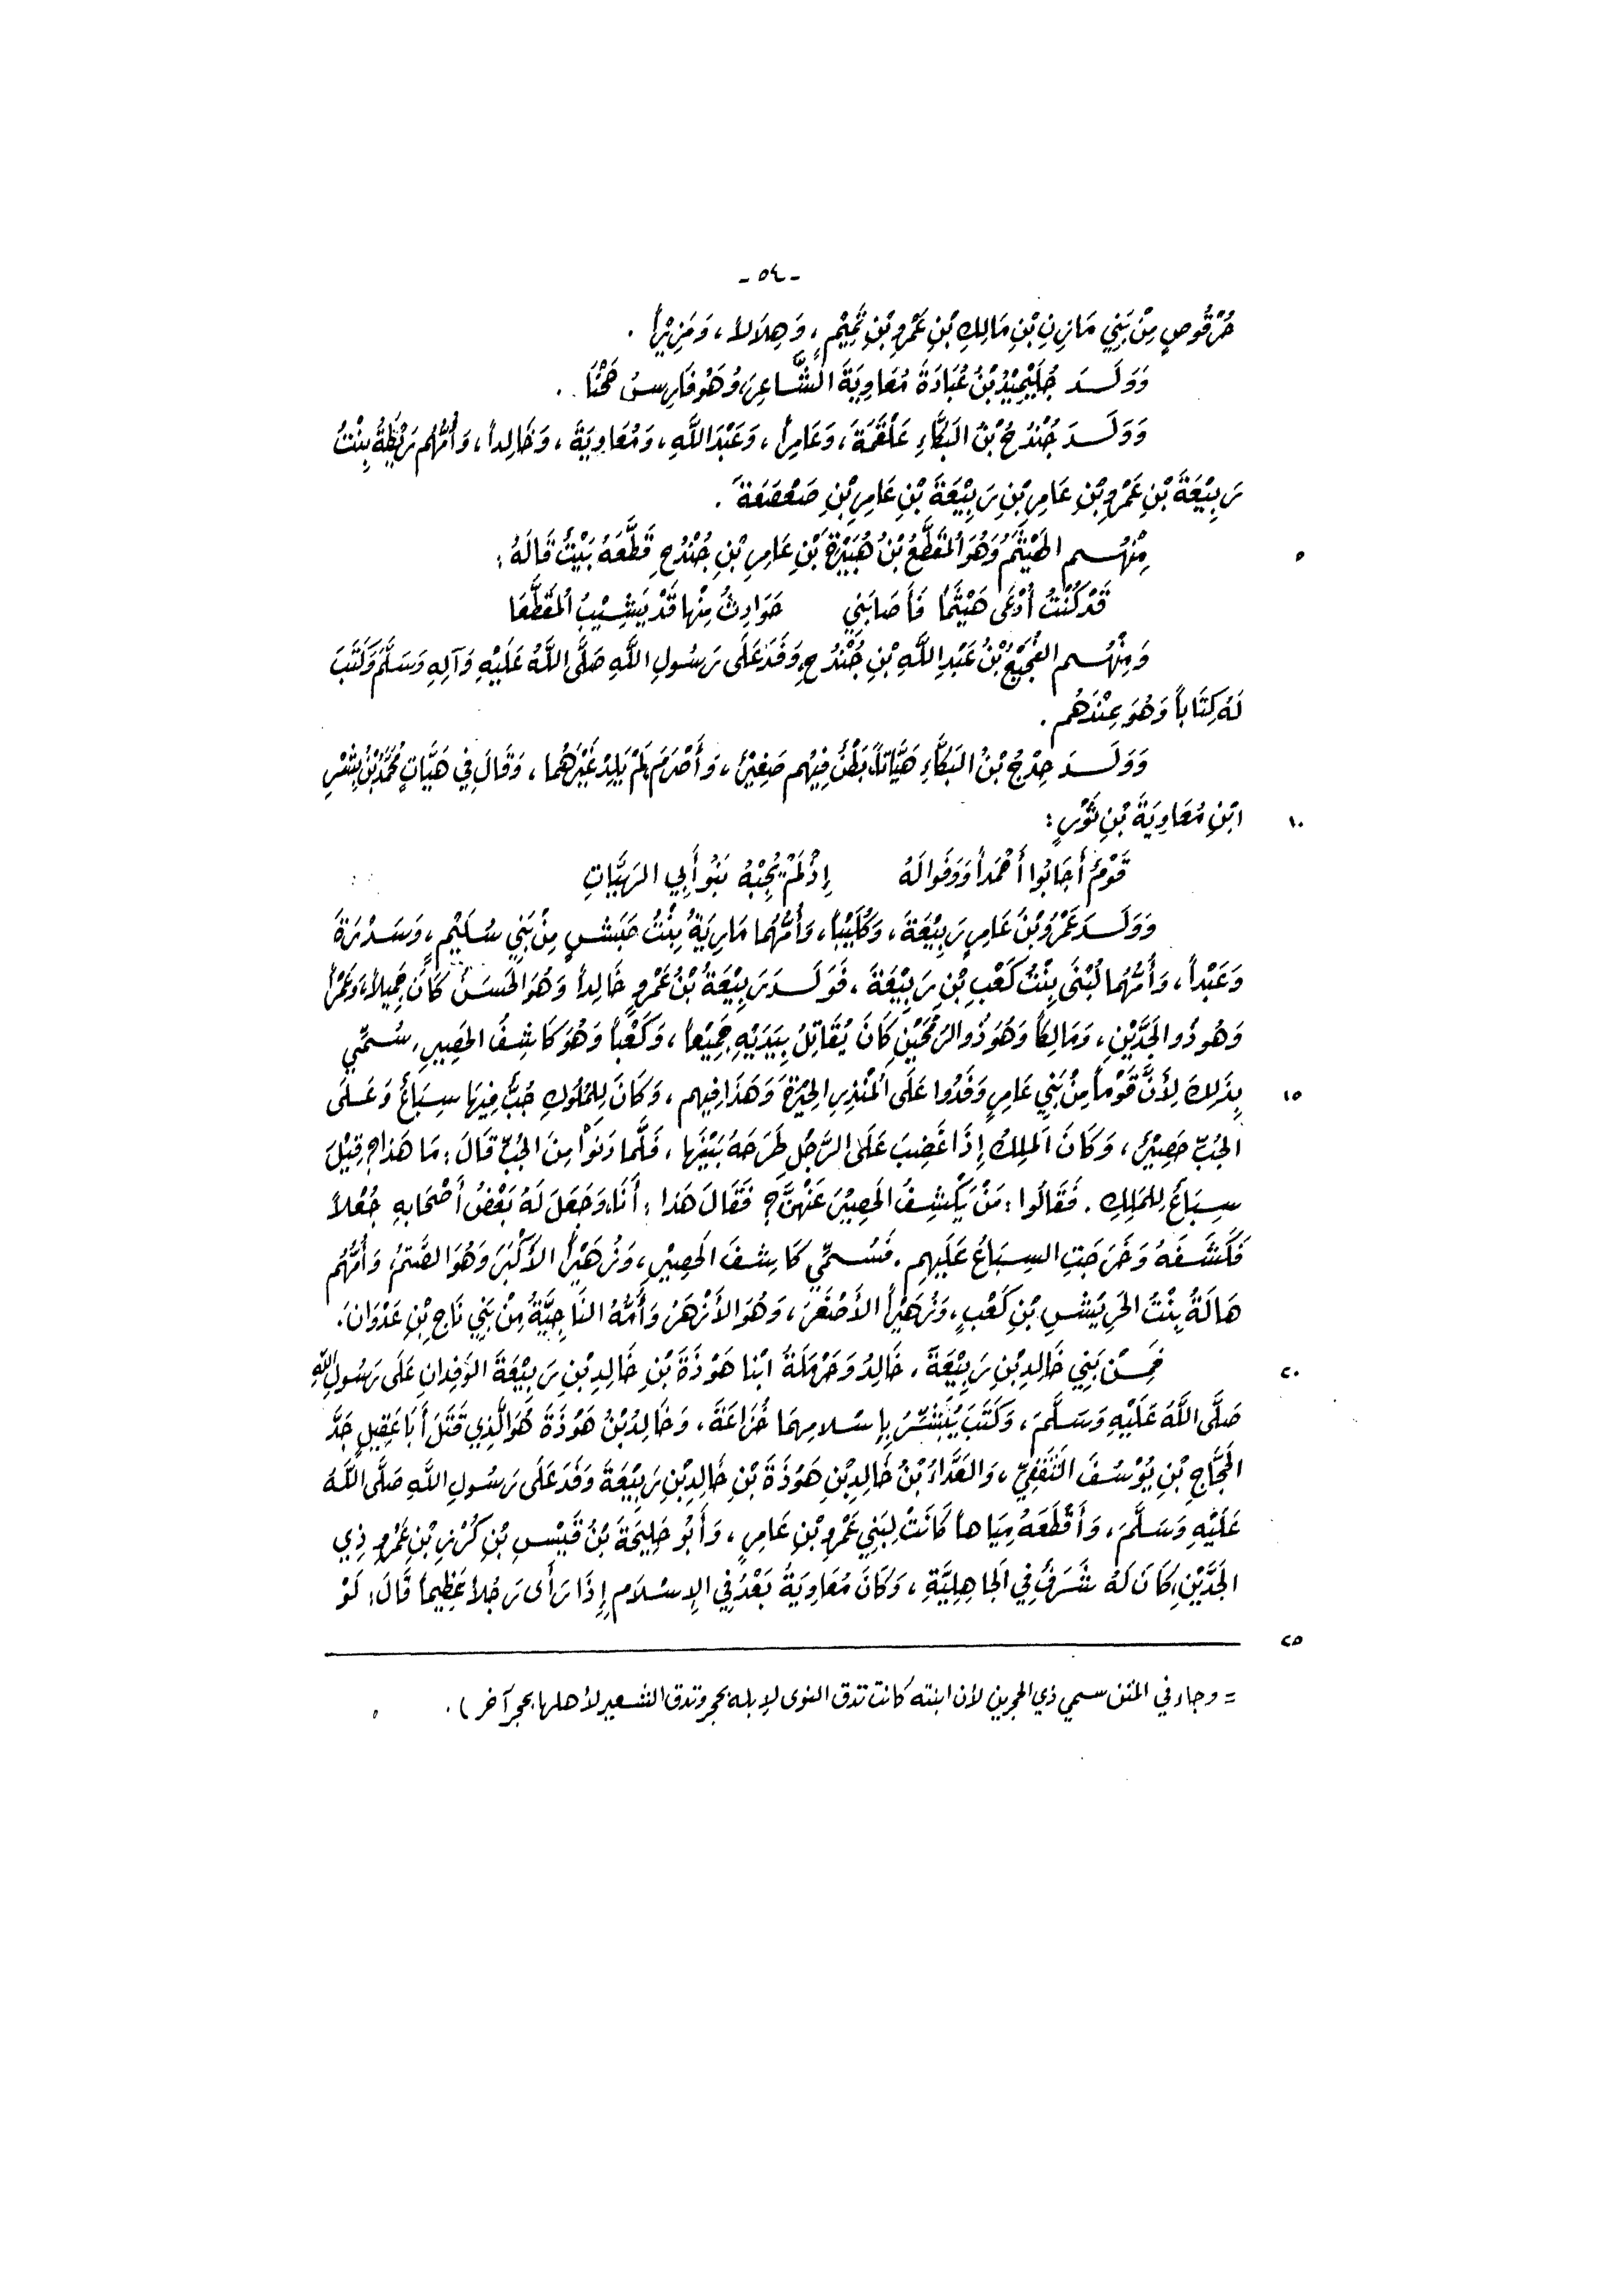 - ٥٤ -
حُرْقُوصٍ مِنْ بَنِي مَازِنِ بْنِ مَالِكِ بْنِ عَمْرِو بْنِ تَمِيْمٍ، وَهِلَالاً، وَمَزِيْراً.
وَوَلَدَ جُلَيْمِيْدُ بْنُ عُبَادَةَ مُعَاوِيَةَ الشَّاعِرَ، وَهُوَ فَارِسُ
وَوَلَدَ جُنْدُحُ بْنُ البَكَّاءِ عَلْقَمَةَ، وَعَامِراً، وَعَبْدَ اللَّهِ، وَمُعَاوِيَةَ، وَخَالِداً، وَأُمُّهُم رَيْطَةُ بِنْتُ
رَبِيْعَةَ بْنِ عَمْرِو بْنِ عَامِرِ بْنِ رَبِيْعَةَ بْنِ عَامِرِ بْنِ صَعْصَعَةَ.
مِنْهُم الهَيْثَمُ وَهُوَ المُقَطَّعُ بْنُ هُبَيْرَةَ بْنِ عَامِرِ بْنِ جُنْدُحِ قَطَّعَهُ بَيْتٌ قَالَهُ: ٥
قَدْ كُنْتُ أُدْعَى هَيْثَمًا فَأَصَابَنِي حَوَادِثُ مِنْها قَدْ يَشِيْبُ المُقَطَّعَا
وَمِنْهُم الفُجَيْعُ بْنُ عَبْدِ اللَّهِ بْنِ جُنْدُحٍ، وَفَدَ عَلَى رَسُولِ اللَّهِ صَلَّى اللَّهُ عَلَيْهِ وَآلِهِ وَسَلَّمَ وَكَتَبَ
لَهُ كِتَاباً وَهُوَ عِنْدَهُم.
وَوَلَدَ حِدْجُ بْنُ البَكَّاءِ هَيَّاتاً، بَطْنٌ فِيْهُم صَغِيْرٌ، وَأَصْرَمَ لَمْ يَلِدْ غَيْرَهُما، وَقَالَ فِي هَيَّاتٍ مُحَمَّدُ بْنُ بِشْرِ
ابْنِ مُعَاوِيَةَ بْنِ ثَوْرٍ: ١٠
قَوْمٌ أَجَابُوا أَحْمَداً وَوَفَوا لَهُ إِذْ لَمْ يُجِبْهُ بَنُو أَبِي الهَيَّاتِ
وَوَلَدَ عَمْرُو بْنُ عَامِرٍ رَبِيْعَةَ، وَكُلَيْباً، وَأُمُّهُما مَارِيَةُ بِنْتُ حَبَشٍ مِنْ بَنِي سُلَيْمٍ، وَسَدْرَةَ
وَعَبْداً، وَأُمُّهُما لُبْنَى بِنْتُ كَعْبِ بْنِ رَبِيْعَةَ، فَوَلَدَ رَبِيْعَةُ بْنُ عَمْرٍو خَالِداً وَهُوَ الحَسَنُ كَانَ جَمِيلاً، وَعَمْراً
وَهُو ذُو الجَدَّيْنِ، وَمَالِكاً وَهُوَ ذُو الرُّمْحَيْنِ كَانَ يُقَاتِلُ بِيَدَيْهِ جَمِيْعاً، وَكَعْباً وَهُوَ كَاشِفُ الحَصِيرِ، سُمِّي
بِذَلِكَ لِأَنَّ قَوْماً مِنْ بَنِي عَامِرٍ وَفَدُوا عَلَى المُنْذِرِ الحِيْرَةَ وَهَذَا فِيهم، وَكَانَ لِلمُلُوكِ جُبٌّ فِيْهَا سِبَاعٌ وَعَلَى ١٥
الجُبِّ حَصِيْرٌ، وَكَانَ المَلِكُ إِذَا غَضِبَ عَلَى الرَّجُلِ طَرَحَهُ بَيْنَها، فَلَمَّا دَنَوْا مِنَ الجُبِّ قَالَ: مَا هَذا؟ قِيْلَ
سِبَاعٌ لِلمَلِكِ. فَقَالُوا: مَنْ يَكْشِفُ الحَصِيْرَ عَنْهُنَّ؟ فَقَالَ هَذا: أَنَا، وَجَعَلَ لَهُ بَعْضُ أَصْحَابِهِ جُعْلاً
فَكَشَفَهُ وَخَرَجَتِ السِبَاعُ عَلَيهِم. فَسُمِّي كَاشِفَ الحَصِيْرِ، وَزُهَيْراً الأَكْبَرَ وَهُوَ الصَّتْمُ، وَأُمُّهُم
هَالَةُ بِنْتُ الحَرِيْشِ بْنِ كَعْبٍ، وَزُهَيْراً الأَصْغَرَ، وَهُوَ الأَزْهَرُ وَأُمُّهُ النَّاجِيَّةُ مِنْ بَنِي نَاجِ بْنِ عَدْوَانَ.
فَمِنْ بَنِي خَالِدِ بْنِ رَبِيْعَةَ، خَالِدٌ وَحَرْمَلَةُ ابْنا هَوْذَةَ بْنِ خَالِدِ بْنِ رَبِيْعَةَ الوَفِدَانِ عَلَى رَسُولِ اللَّهِ ٢٠
صَلَّى اللَّهُ عَلَيْهِ وَسَلَّمَ، وَكَتَبَ يُبَشِّرُ بِإِسْلامِهِمَا خُزَاعَةَ، وَخَالِدُ بْنُ هَوْذَةَ هُوَ الَّذِي قَتَلَ أَبَا عَقِيلٍ جَدَّ
الحَجَّاجِ بْنِ يُوْسُفَ الثَّقَفِيِّ، وَالعَدَّاءُ بْنُ خَالِدِ بْنِ هَوْذَةَ بْنِ خَالِدِ بْنِ رَبِيْعَةَ وَفَدَ عَلَى رَسُولِ اللَّهِ صَلَّى اللَّهُ
عَلَيْهِ وَسَلَّمَ، وَأَقْطَعَهُ مِيَاهاً كَانَتْ لِبَنِي عَمْرِو بْنِ عَامِرٍ، وَأَبُو حَلِيحَةَ بْنُ قَيْسِ بْنِ كُرْزِ بْنِ عَمْرٍو ذِي
الجَدَّيْنِ، كَانَ لَهُ شَرَفٌ فِي الجَاهِلِيَّةِ، وَكَانَ مُعَاوِيَةُ بَعْدُ فِي الإِسْلَامِ إِذَا رَأَى رَجُلاً عَظِيماً قَالَ: لَوْ
٢٥
= وجاء في المتن سمي ذي الحجرين لأن ابنته كانت تدق النوى لإبله بحجر وتدق الشعير لأهلها بحجر آخر).